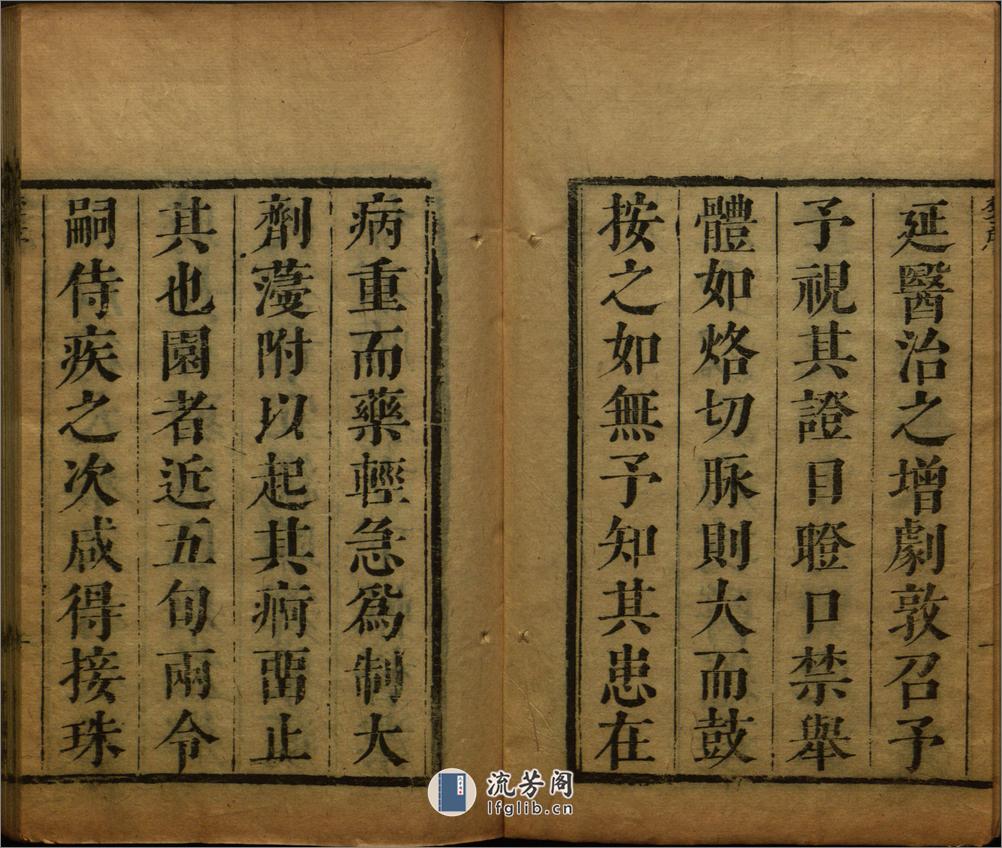 延醫治之增劇敦召予
予視其證目瞪口禁舉
體如烙切脉則大而鼓
按之如無予知其患在
病重而藥輕急爲制大
劑薓附以起其痾畱止
其也園者近五旬兩令
嗣侍疾之次咸得接珠
流芳阁
lfglib.cn